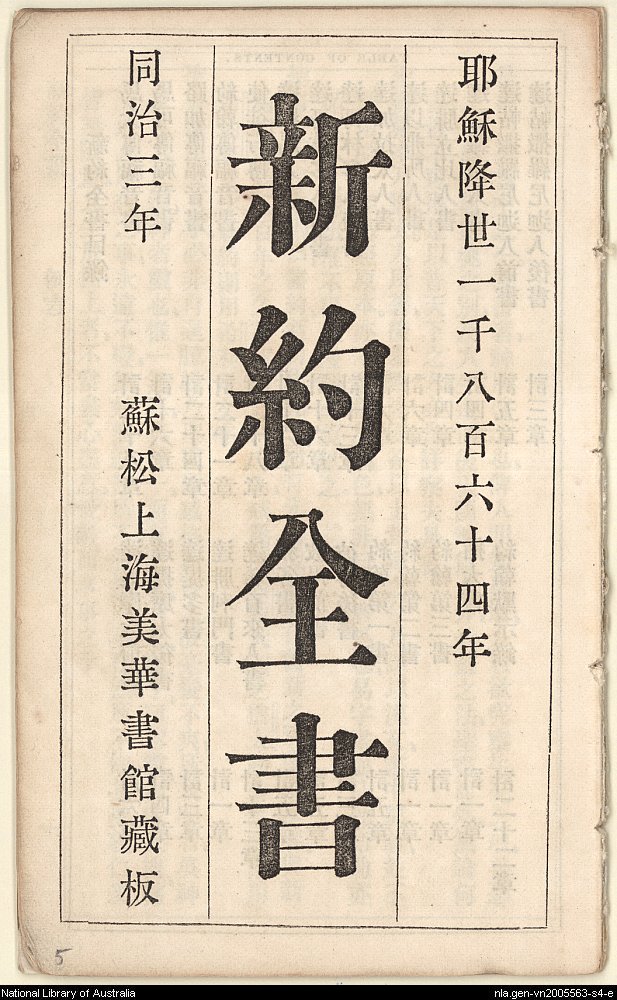 耶穌降世一千八百六十四年
新約全書
同治三年 蘇松上海美華書館藏板
5
National Library of Australia
nla.gen-vn2005563-s4-e